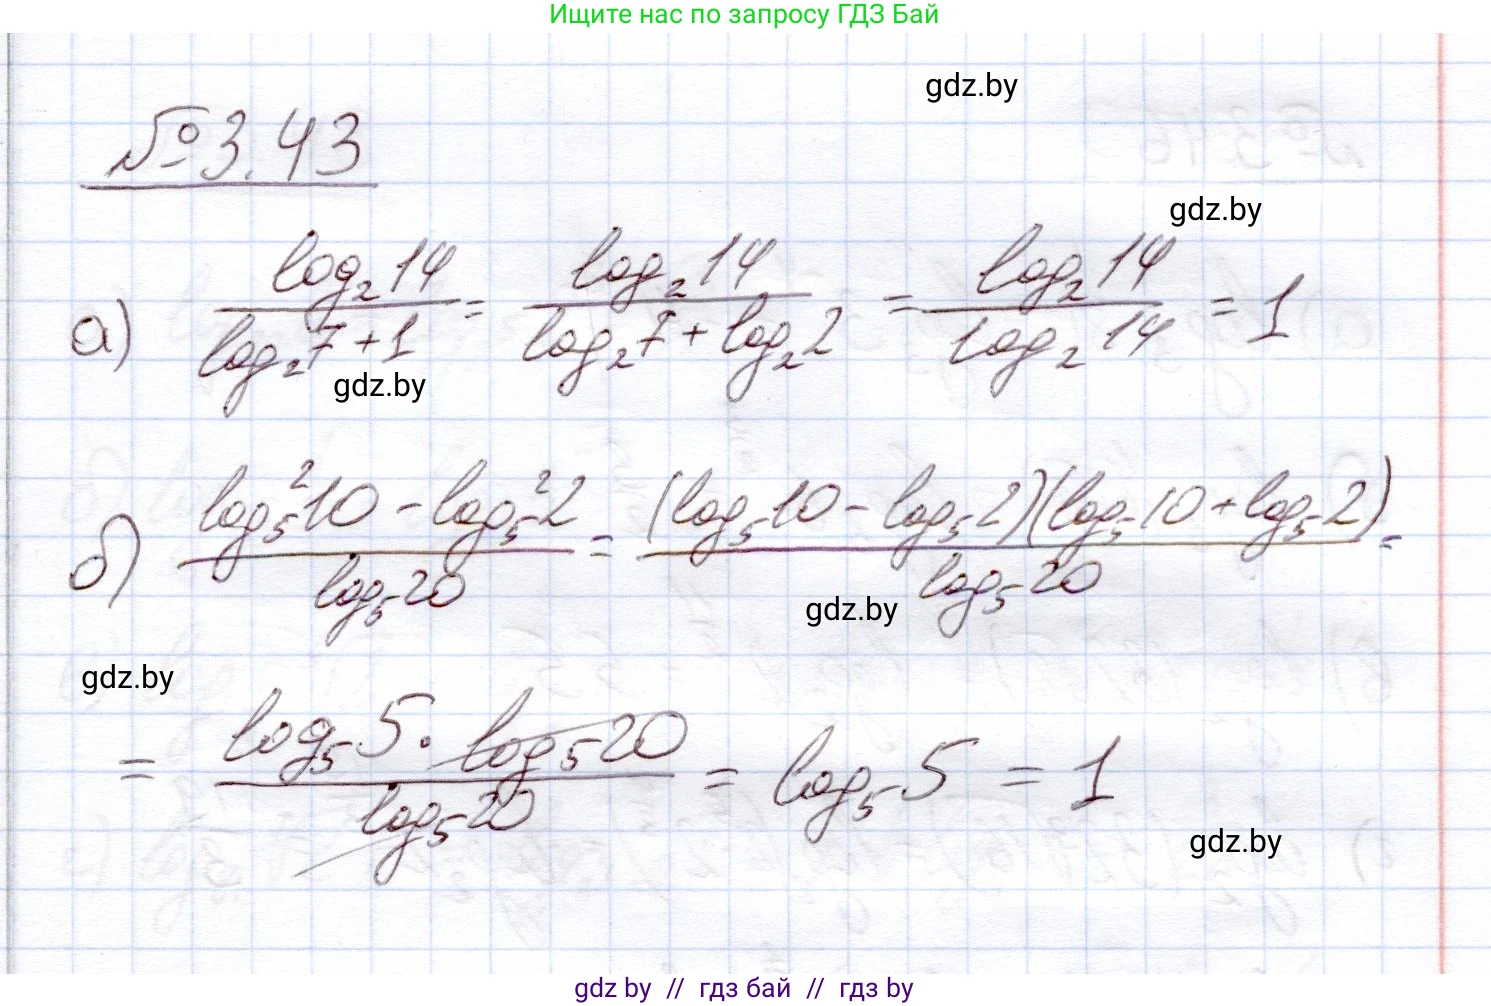 Ищите нас по запросу ГДЗ Бай
gdz.by
№3.43
gdz.by
а) log₂14 / (log₂7 + 1) = log₂14 / (log₂7 + log₂2) = log₂14 / log₂14 = 1
gdz.by
б) (log₅²10 - log₅²2) / log₅20 = (log₅10 - log₅2)(log₅10 + log₅2) / log₅20 =
gdz.by
gdz.by
= log₅5 · log₅20 / log₅20 = log₅5 = 1
gdz.by
gdz by // гдз бай // гдз by